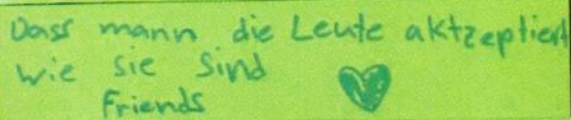 Dass mann die Leute aktzeptiert
wie sie sind
Friends